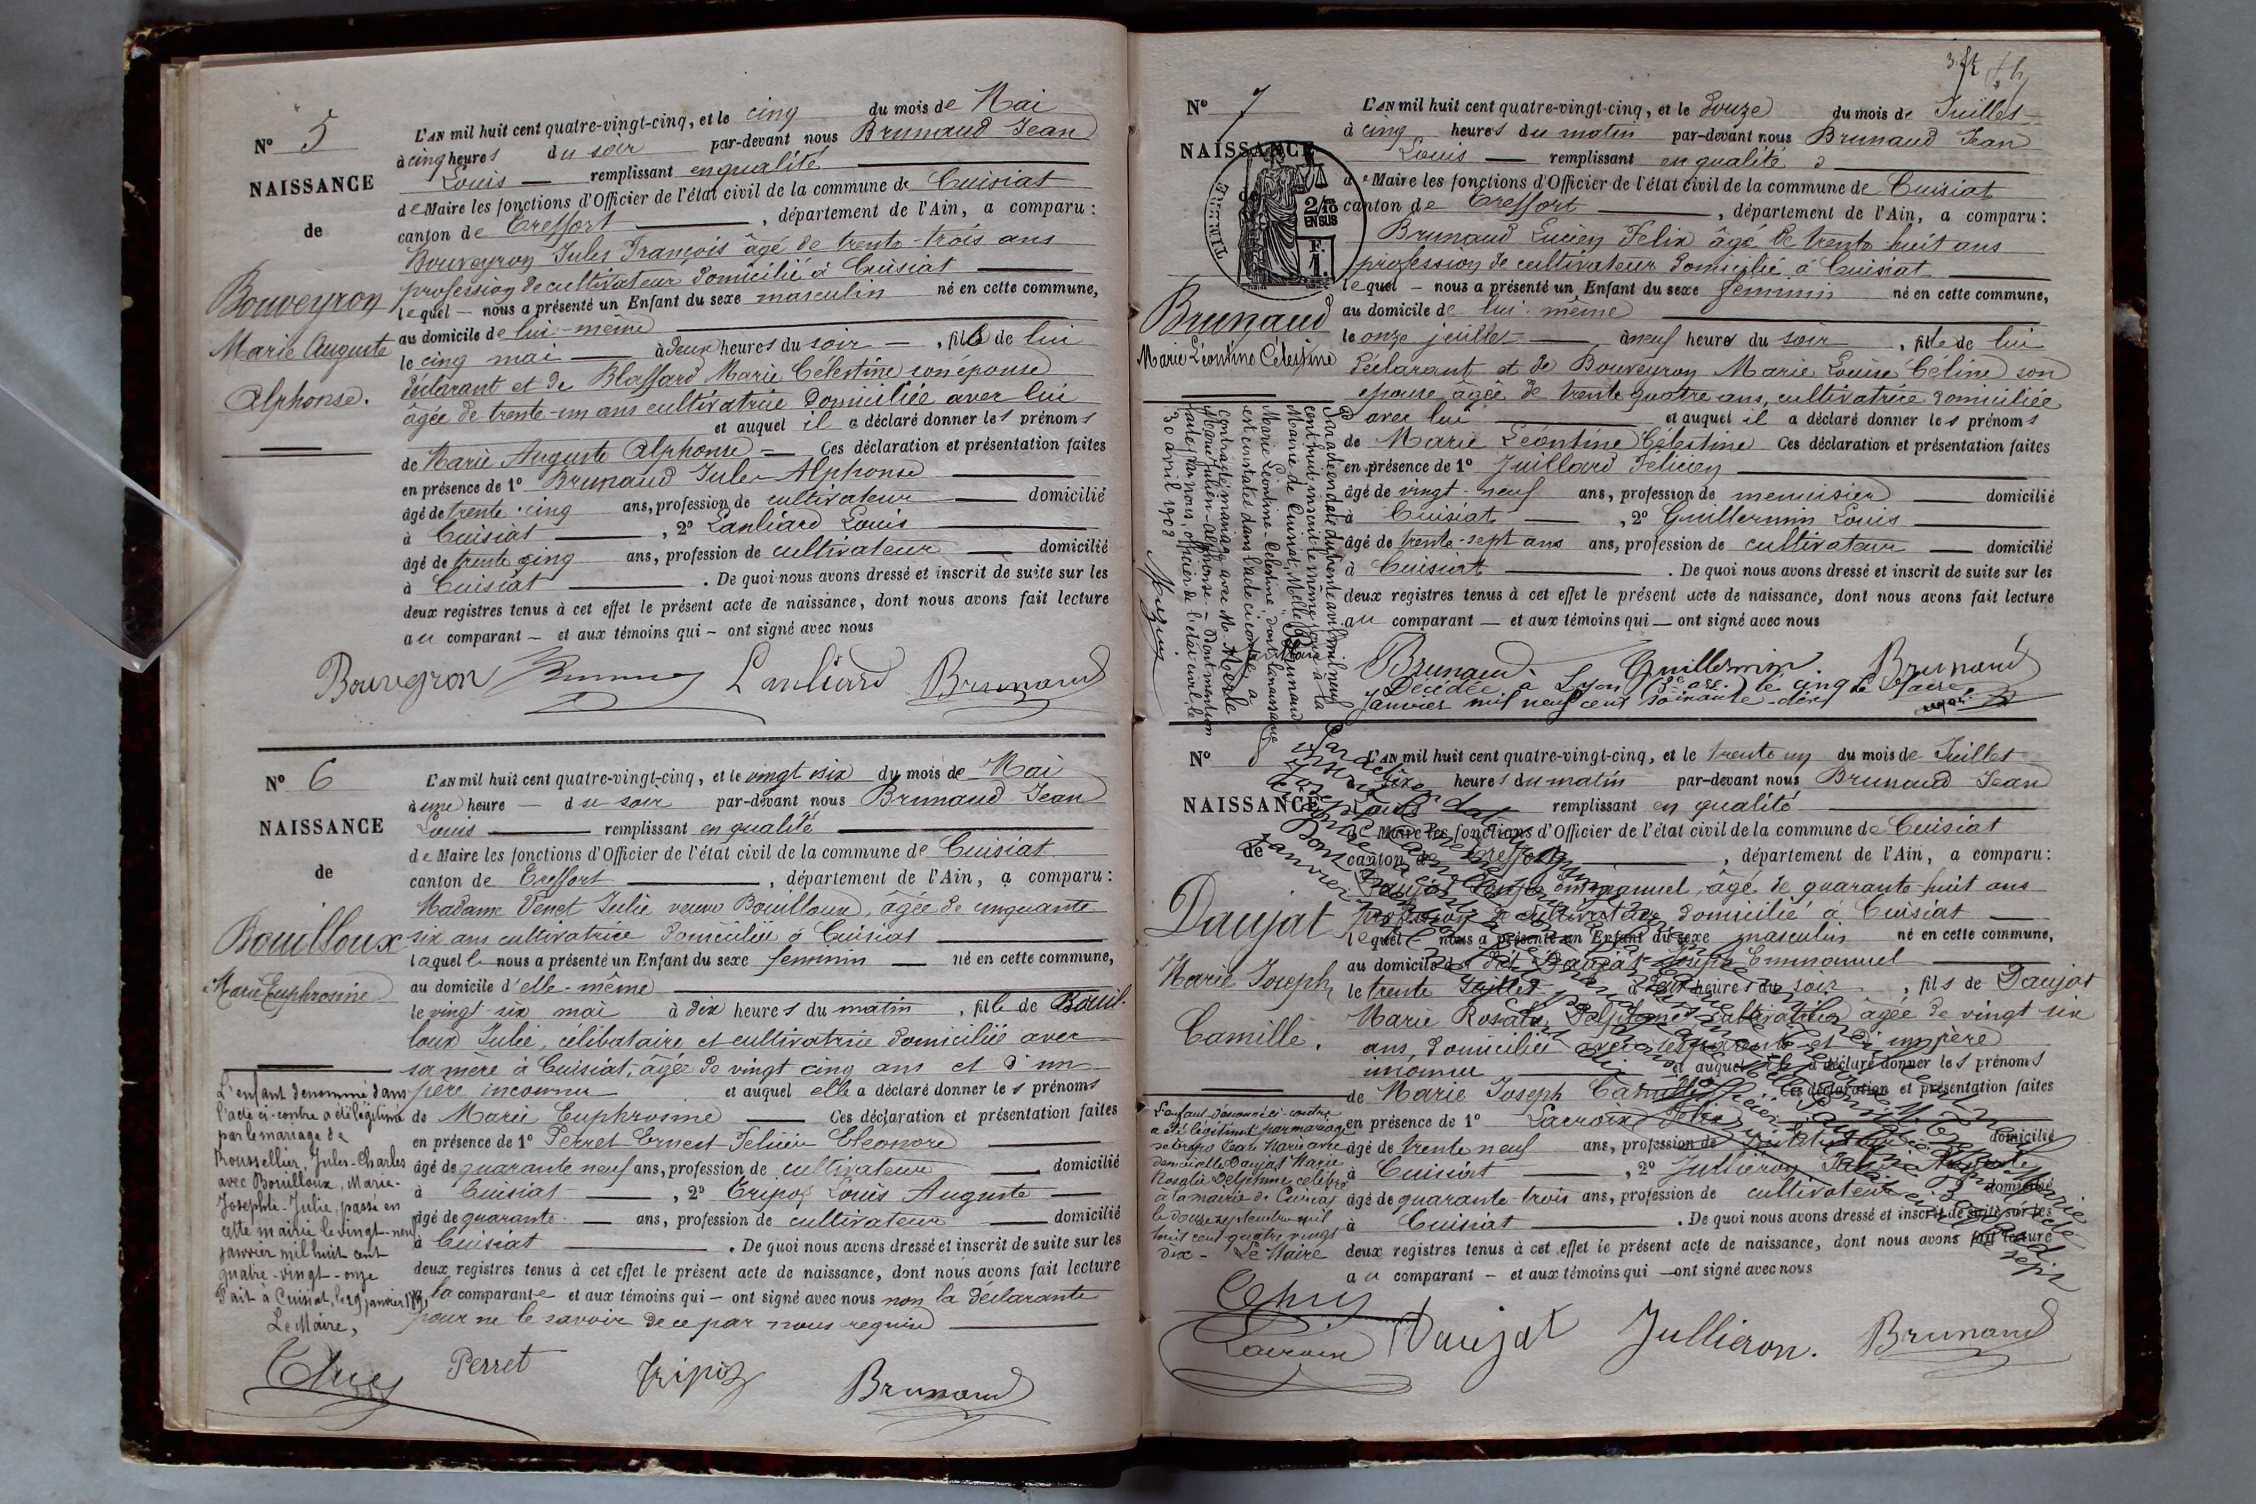 N° 5
NAISSANCE
de
Bouveyron
Marie Auguste
Alphonse.
L'AN mil huit cent quatre-vingt-cinq, et le cinq du mois de Mai
à cinq heures du soir par-devant nous Brunaud Jean
Louis — remplissant en qualité
de Maire les fonctions d'Officier de l'état civil de la commune de Cuisiat
canton de Treffort, département de l'Ain, a comparu :
Bouveyron Jules François âgé de trente-trois ans
profession de cultivateur domicilié à Cuisiat
lequel — nous a présenté un Enfant du sexe masculin né en cette commune,
au domicile de lui-même
le cinq mai à deux heures du soir —, fils de lui
déclarant et de Blassard Marie Célestine son épouse
âgée de trente-un ans cultivatrice domiciliée avec lui
et auquel il a déclaré donner les prénoms
de Marie Auguste Alphonse — Ces déclaration et présentation faites
en présence de 1° Brunaud Jules Alphonse
âgé de trente-cinq ans, profession de cultivateur domicilié
à Cuisiat, 2° Lanliard Louis
âgé de trente cinq ans, profession de cultivateur domicilié
à Cuisiat. De quoi nous avons dressé et inscrit de suite sur les
deux registres tenus à cet effet le présent acte de naissance, dont nous avons fait lecture
au comparant — et aux témoins qui — ont signé avec nous
Bouveyron Lanliard Brunaud
N° 6
NAISSANCE
de
Bouilloux
Marie Euphrosine
L'AN mil huit cent quatre-vingt-cinq, et le vingt six du mois de Mai
à une heure — du soir par-devant nous Brunaud Jean
Louis remplissant en qualité
de Maire les fonctions d'Officier de l'état civil de la commune de Cuisiat
canton de Treffort, département de l'Ain, a comparu :
Madame Venet Julie veuve Bouilloux, âgée de cinquante
six ans cultivatrice domiciliée à Cuisiat
laquelle nous a présenté un Enfant du sexe féminin — né en cette commune,
au domicile d'elle-même
le vingt-six mai à dix heures du matin, fille de Bouil-
loux Julie, célibataire et cultivatrice domiciliée avec
sa mère à Cuisiat, âgée de vingt cinq ans et d'un
père inconnu et auquel elle a déclaré donner les prénoms
de Marie Euphrosine — Ces déclaration et présentation faites
en présence de 1° Perret Ernest Felicien Eleonore
âgé de quarante neuf ans, profession de cultivateur domicilié
à Cuisiat, 2° Tripoz Louis Auguste
âgé de quarante — ans, profession de cultivateur domicilié
à Cuisiat. De quoi nous avons dressé et inscrit de suite sur les
deux registres tenus à cet effet le présent acte de naissance, dont nous avons fait lecture
la comparante et aux témoins qui — ont signé avec nous non la déclarante
pour ne le savoir de ce par nous requise
L'enfant dénommé dans
l'acte ci-contre a été légitimé
par le mariage de
Roussellier, Jules-Charles
avec Bouilloux, Marie-
Josephte-Julie, passé en
cette mairie le vingt-neuf
janvier mil huit cent
quatre-vingt-onze
Fait à Cuisiat, le 29 janvier 1891
Le Maire,
Perret Tripoz Brunaud
N° 7
NAISSANCE
de
TIMBRE
2/10
EN SUS
F.
1.
Brunaud
Marie Léontine Célestine
L'AN mil huit cent quatre-vingt-cinq, et le douze du mois de Juillet
à cinq heures du matin par-devant nous Brunaud Jean
Louis — remplissant en qualité d
e Maire les fonctions d'Officier de l'état civil de la commune de Cuisiat
canton de Treffort, département de l'Ain, a comparu :
Brunaud Lucien Felix âgé de trente huit ans
profession de cultivateur domicilié à Cuisiat
lequel — nous a présenté un Enfant du sexe féminin né en cette commune,
au domicile de lui-même
le onze juillet à neuf heures du soir, fille de lui
déclarant et de Bouveyron Marie Louise Céline son
épouse âgée de trente quatre ans, cultivatrice domiciliée
avec lui et auquel il a déclaré donner les prénoms
de Marie Léontine Célestine Ces déclaration et présentation faites
en présence de 1° Juillard Félicien
âgé de vingt-neuf ans, profession de menuisier domicilié
à Cuisiat, 2° Guillermin Louis
âgé de trente-sept ans ans, profession de cultivateur domicilié
à Cuisiat. De quoi nous avons dressé et inscrit de suite sur les
deux registres tenus à cet effet le présent acte de naissance, dont nous avons fait lecture
au comparant — et aux témoins qui — ont signé avec nous
Brunaud. Guillermin. Brunaud
Décédée à Lyon le cinq
Janvier mil neuf cent soixante-dix
Le Maire
Par acte en date du trente avril mil neuf
cent huit inscrit le même jour à la
Mairie de Cuisiat, Melle Brunaud
Marie Léontine Célestine, dont la naissance
est constatée dans l'acte ci-contre, a
contracté mariage avec M. Merle
Marie Julien-Alphonse. — Dont mention
faite par nous, officier de l'état civil, le
30 avril 1908
N° 8
NAISSANCE
de
Daujat
Marie Joseph
Camille.
L'AN mil huit cent quatre-vingt-cinq, et le trente un du mois de Juillet
à dix heures du matin par-devant nous Brunaud Jean
Louis remplissant en qualité
de Maire les fonctions d'Officier de l'état civil de la commune de Cuisiat
canton de Treffort, département de l'Ain, a comparu :
Daujat Joseph Emmanuel, âgé de quarante huit ans
profession de cultivateur domicilié à Cuisiat
lequel nous a présenté un Enfant du sexe masculin né en cette commune,
au domicile du dit Daujat Joseph Emmanuel
le trente Juillet à heures du soir, fils de Daujat
Marie Rosalie Delphine, cultivatrice âgée de vingt six
ans, domiciliée avec et d'un père
inconnu et auquel il a déclaré donner les prénoms
de Marie Joseph Camille Ces déclaration et présentation faites
en présence de 1° Lacroix Felix
âgé de trente neuf ans, profession de domicilié
à Cuisiat, 2° Jullieron
âgé de quarante-trois ans, profession de cultivateur domicilié
à Cuisiat. De quoi nous avons dressé et inscrit de suite sur les
deux registres tenus à cet effet le présent acte de naissance, dont nous avons fait lecture
au comparant — et aux témoins qui — ont signé avec nous
L'enfant dénommé ci-contre
a été légitimé par mariage
avec
demoiselle Daujat Marie
Rosalie Delphine célébré
à la mairie de Cuisiat
le douze septembre mil
huit cent quatre vingt
dix — Le Maire
Lacroix Daujat Jullieron. Brunaud